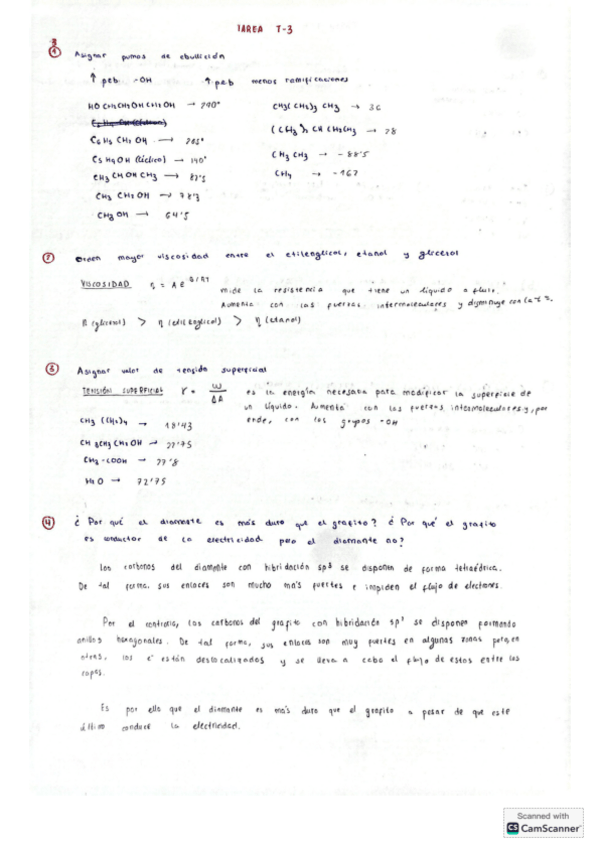 TAREA T-3
① Asignar puntos de ebullición
↑ peb -OH ↑ peb menos ramificaciones
HO CH2CH2OH CH2OH → 290° CH3(CH2)3 CH3 → 36
C6H5 CH2 OH → 205° (CH3)2 CH CH2CH3 → 28
C5H9OH (cíclico) → 140° CH3 CH3 → -88'5
CH3 CHOH CH3 → 82'5 CH4 → -162
CH3 CH2OH → 78'3
CH3OH → 64'5
② Orden mayor viscosidad entre el etilenglicol, etanol y glicerol
VISCOSIDAD η = A e^B/RT mide la resistencia que tiene un líquido a fluir.
Aumenta con las fuerzas intermoleculares y disminuye con la tª.
η (glicerol) > η (etilenglicol) > η (etanol)
③ Asignar valor de tensión superficial
TENSIÓN SUPERFICIAL γ = W/ΔA es la energía necesaria para modificar la superficie de
un líquido. Aumenta con las fuerzas intermoleculares y, por
ende, con los grupos -OH
CH3 (CH2)4 → 18'43
CH3CH2CH2OH → 22'75
CH3-COOH → 27'8
H2O → 72'75
④ ¿Por qué el diamante es más duro que el grafito? ¿Por qué el grafito
es conductor de la electricidad pero el diamante no?
Los carbonos del diamante con hibridación sp³ se disponen de forma tetraédrica.
De tal forma, sus enlaces son mucho más fuertes e impiden el flujo de electrones.
Por el contrario, los carbonos del grafito con hibridación sp² se disponen formando
anillos hexagonales. De tal forma, sus enlaces son muy fuertes en algunas zonas pero en
otras, los e⁻ están deslocalizados y se lleva a cabo el flujo de estos entre las
capas.
Es por ello que el diamante es más duro que el grafito a pesar de que este
último conduce la electricidad.
Scanned with
CS CamScanner